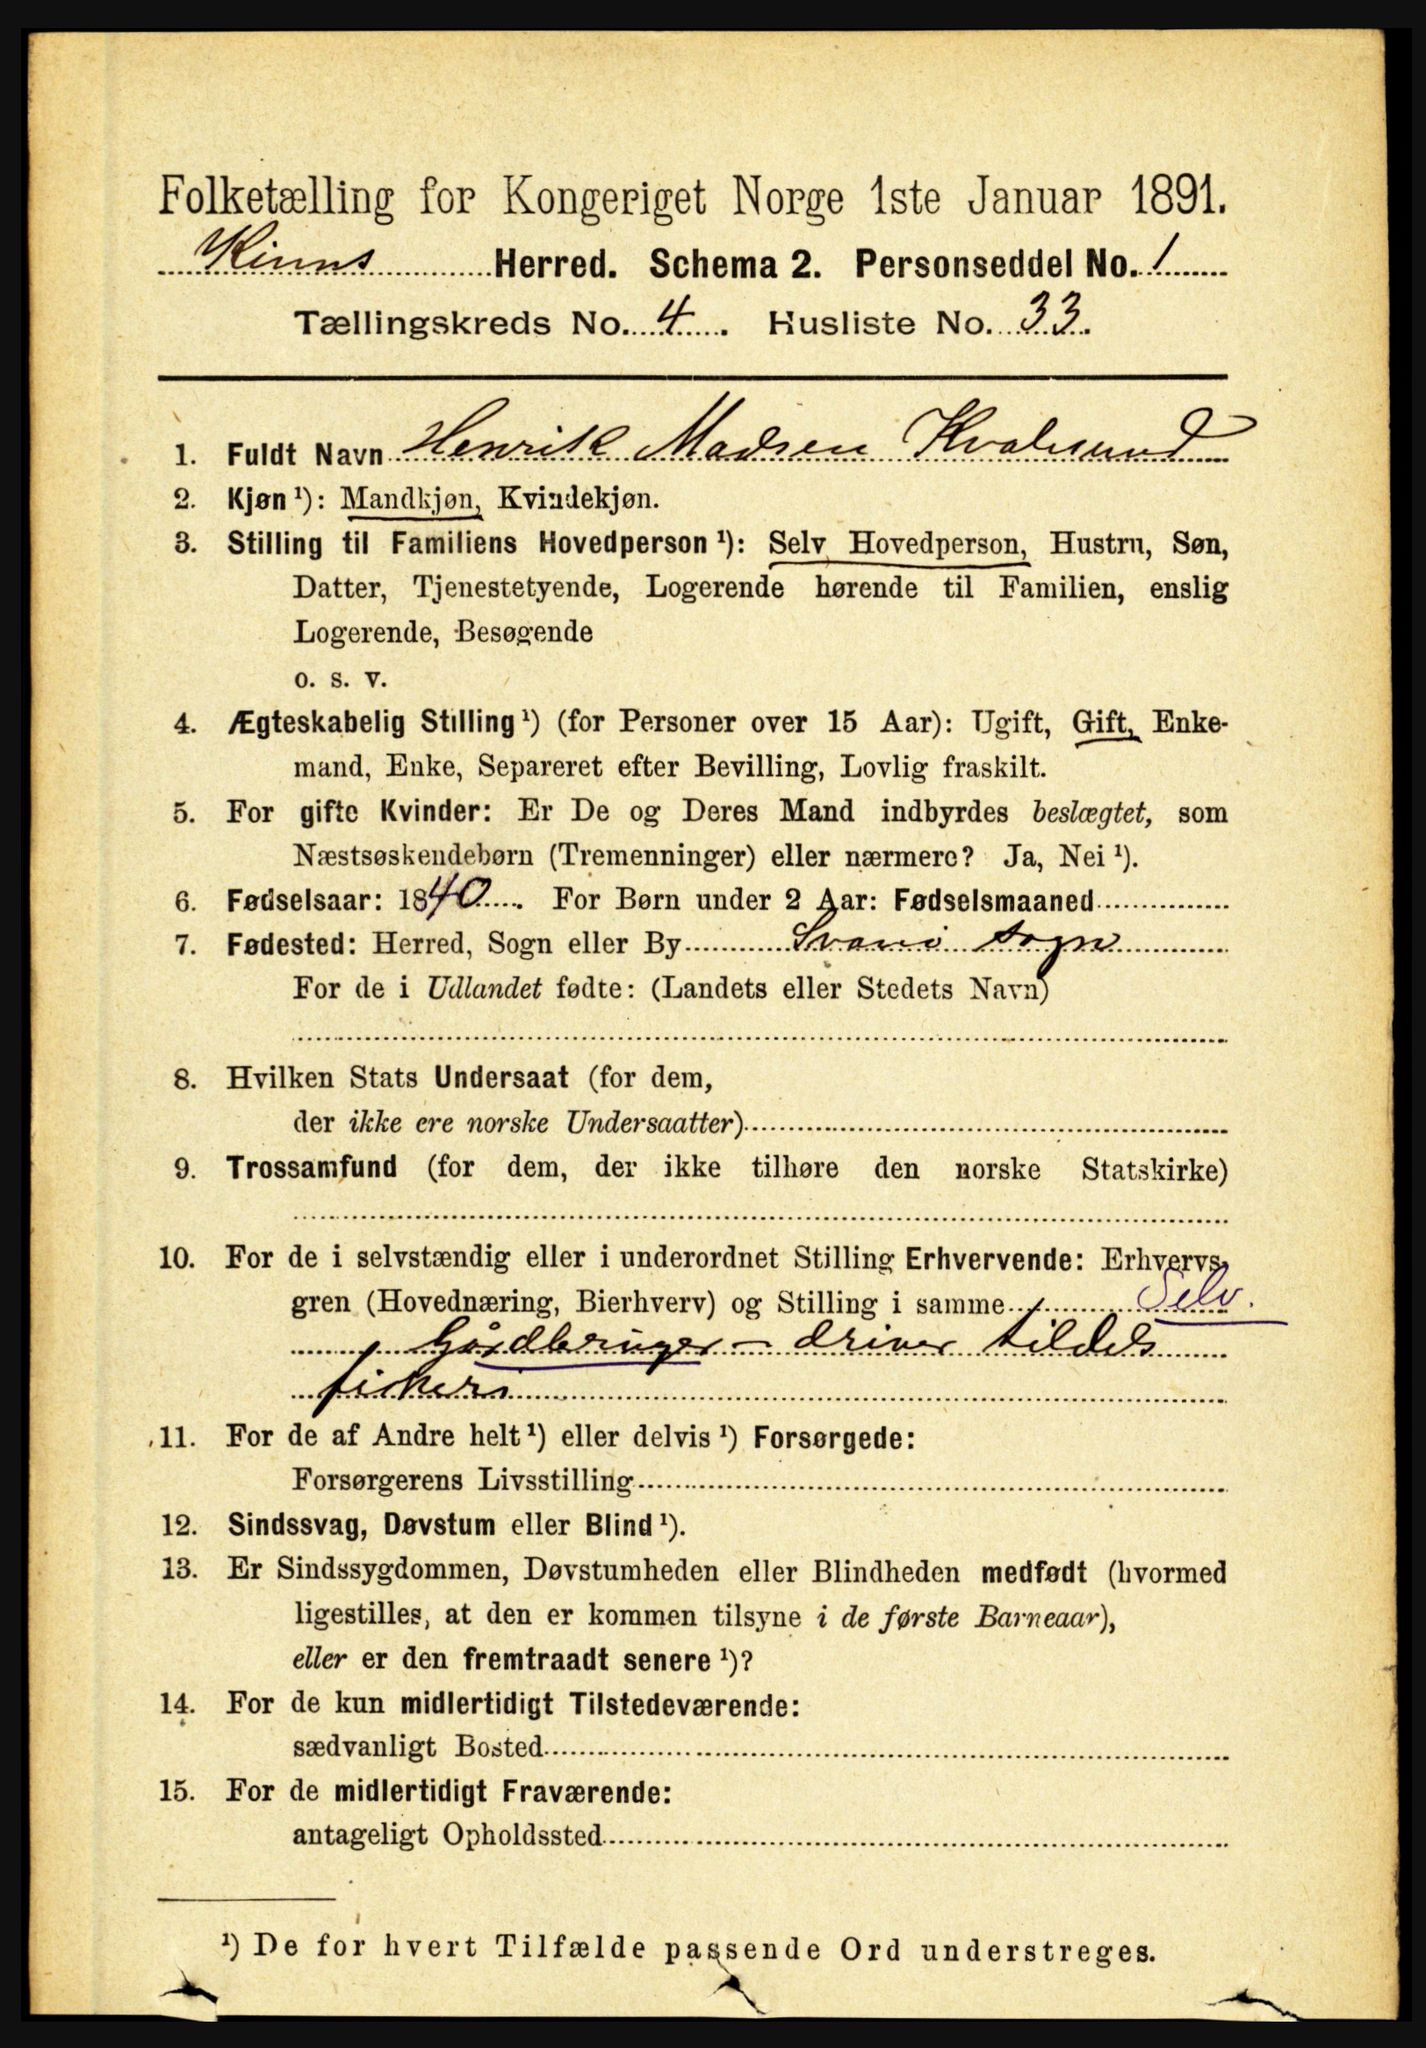 Folketælling for Kongeriget Norge 1ste Januar 1891.
Kinns Herred. Schema 2. Personseddel No. 1
Tællingskreds No. 4. Husliste No. 33.
1. Fuldt Navn Henrik Madsen Kvalesund
2. Kjøn ¹): Mandkjøn, Kvindekjøn.
3. Stilling til Familiens Hovedperson ¹): Selv Hovedperson, Hustru, Søn,
Datter, Tjenestetyende, Logerende hørende til Familien, enslig
Logerende, Besøgende
o. s. v.
4. Ægteskabelig Stilling ¹) (for Personer over 15 Aar): Ugift, Gift, Enke-
mand, Enke, Separeret efter Bevilling, Lovlig fraskilt.
5. For gifte Kvinder: Er De og Deres Mand indbyrdes beslægtet, som
Næstsøskendebørn (Tremenninger) eller nærmere? Ja, Nei ¹).
6. Fødselsaar: 1840. For Børn under 2 Aar: Fødselsmaaned
7. Fødested: Herred, Sogn eller By Svanø sogn
For de i Udlandet fødte: (Landets eller Stedets Navn)
8. Hvilken Stats Undersaat (for dem,
der ikke ere norske Undersaatter)
9. Trossamfund (for dem, der ikke tilhøre den norske Statskirke)
10. For de i selvstændig eller i underordnet Stilling Erhvervende: Erhvervs-
gren (Hovednæring, Bierhverv) og Stilling i samme Selv.
Gårdbruger – driver tildels
fiskeri
11. For de af Andre helt ¹) eller delvis ¹) Forsørgede:
Forsørgerens Livsstilling
12. Sindssvag, Døvstum eller Blind ¹).
13. Er Sindssygdommen, Døvstumheden eller Blindheden medfødt (hvormed
ligestilles, at den er kommen tilsyne i de første Barneaar),
eller er den fremtraadt senere ¹)?
14. For de kun midlertidigt Tilstedeværende:
sædvanligt Bosted
15. For de midlertidigt Fraværende:
antageligt Opholdssted
¹) De for hvert Tilfælde passende Ord understreges.